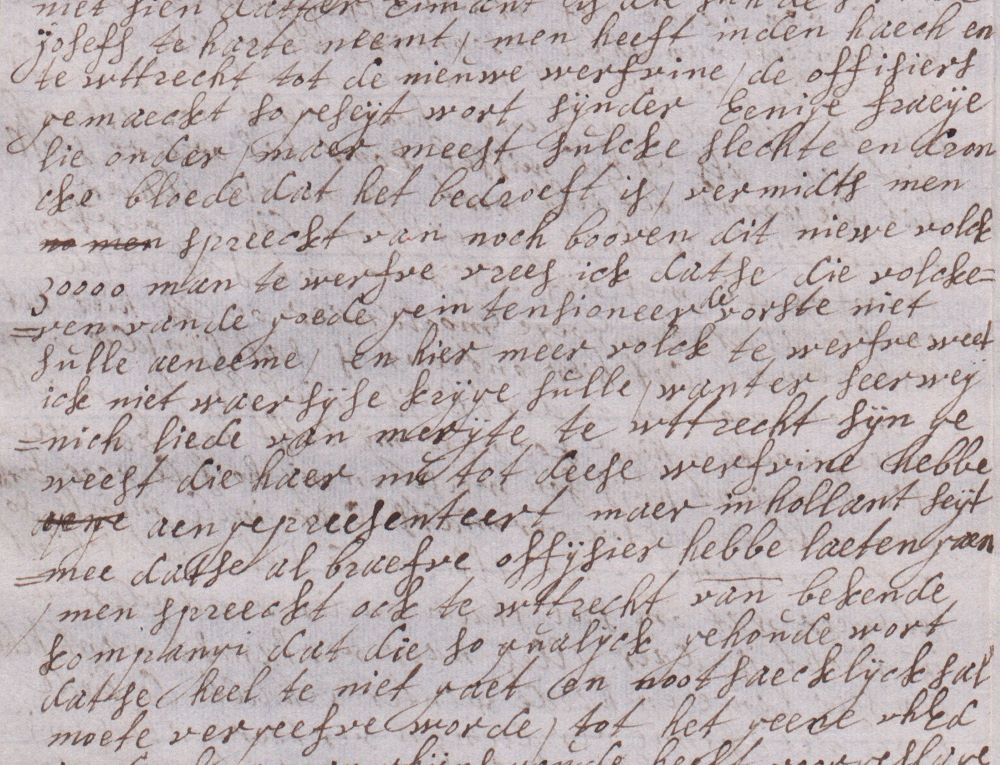 niet sien datter Eimant is die
Josefs te harte neemt / men heeft inden haech en
te wttrecht tot de nieuwe werfvine / de offisiers
gemaeckt so geseyt wort sijnder Eenige fraeije
lie onder / maer meest sulcke slechte en dron
cke bloede dat het bedroeft is / vermidts men
no men spreeckt van noch booven dit niewe volck
30000 man te werfve vrees ick datse die volcke=
=ren vande goede geintensioneerde vorste niet
sulle aeneeme / En hier meer volck te werfve weet
ick niet waer sijse krijge sulle / want er seer weij
=nich liede van merijte te wttrecht sijn ge
weest die haer nu tot deese werfvine hebbe
aengepreesenteert maer in hollant seijt
=mee datse al braefve offijsier hebbe laeten gaen
/ men spreeckt ock te wttrecht van bekende
kompangi dat die so qualijck gehoude wort
datse heel te niet gaet en nootsaecklijck sal
moete vergeefve worde / tot het geene uhEd